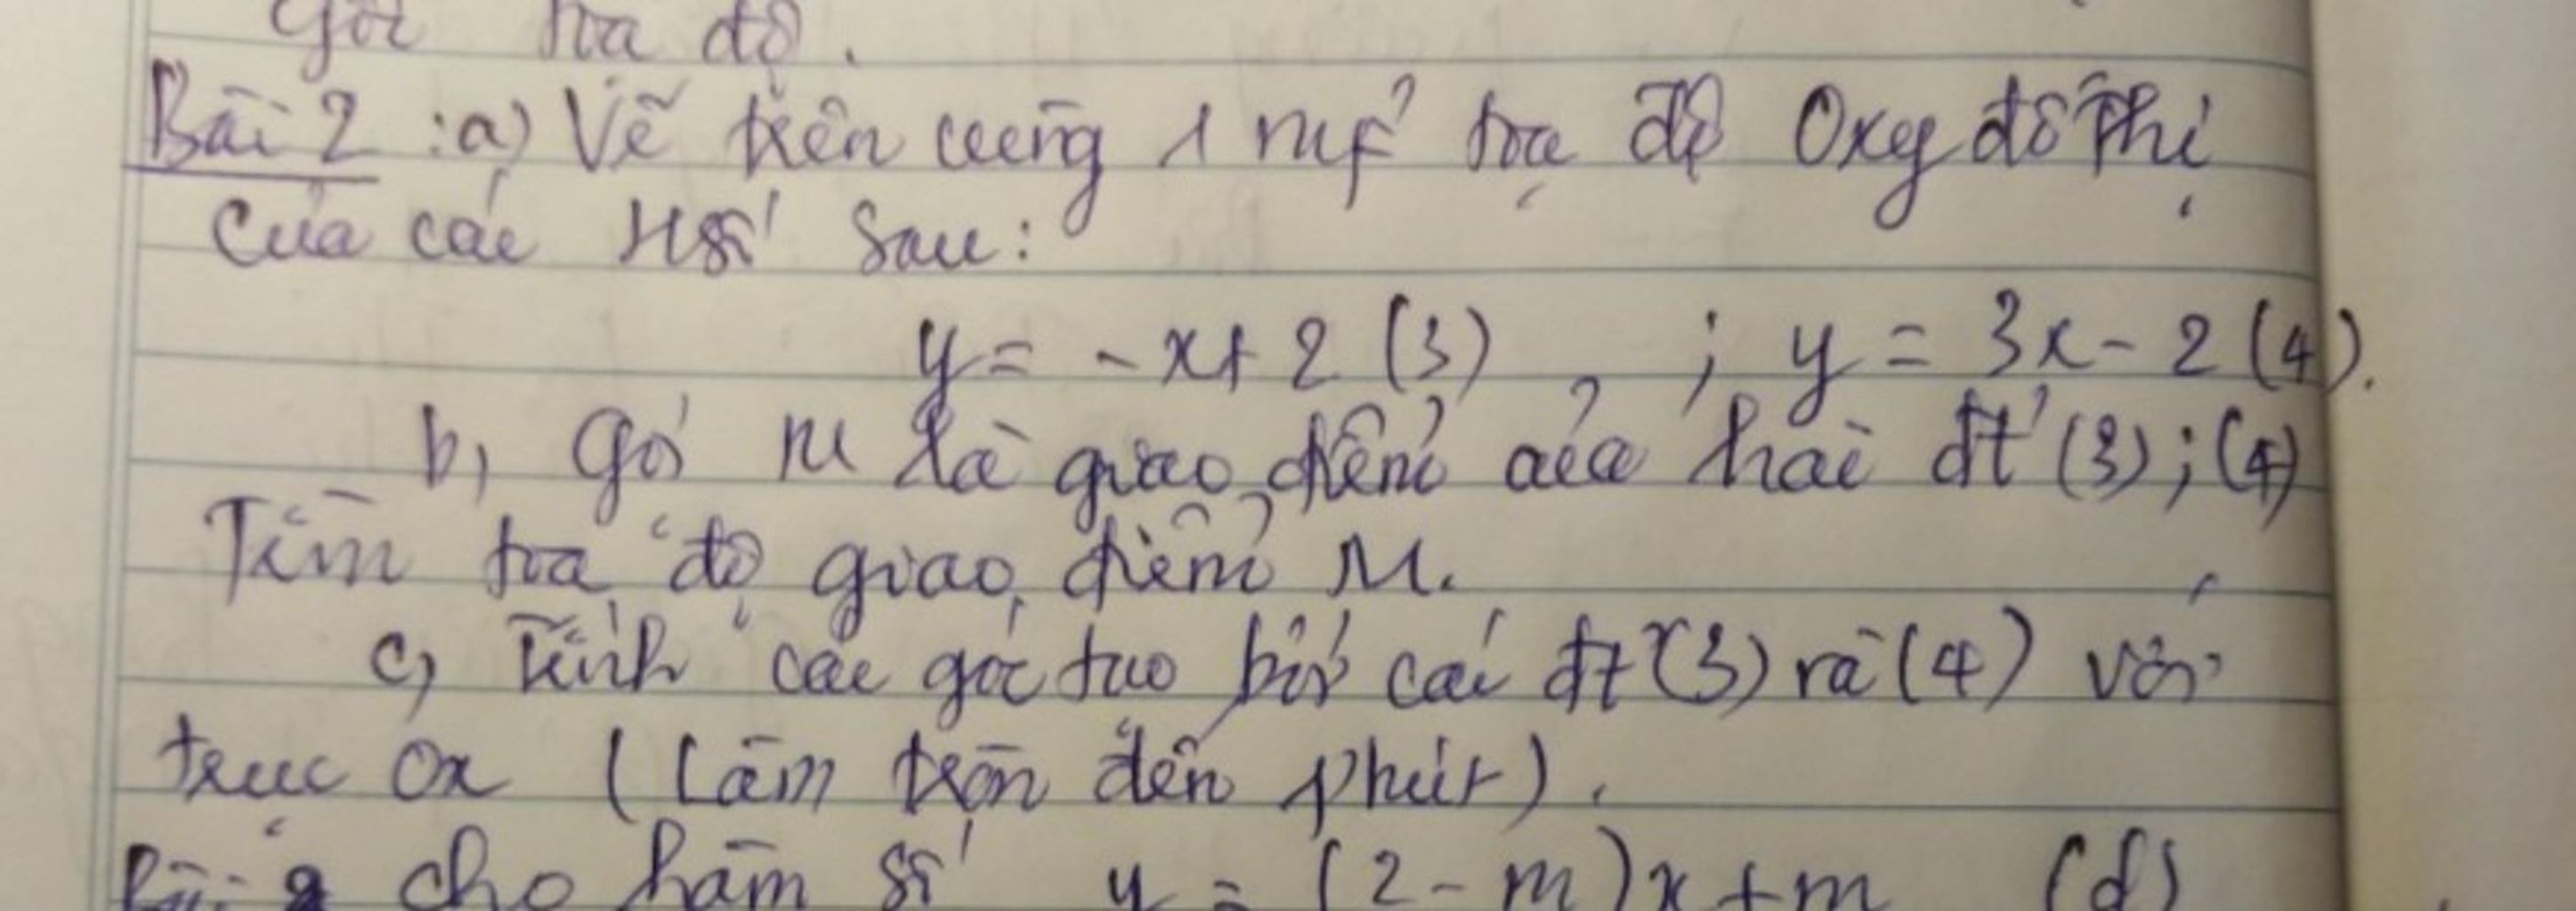 gốc tọa độ.
Bài 2 : a) Vẽ trên cùng 1 mf' tọa độ Oxy đồ thị
Của các Hsố sau:
y = -x + 2 (3) ; y = 3x - 2 (4).
b, Gọi M là giao điểm của hai đt' (3) ; (4)
Tìm tọa độ giao điểm M.
c, Tính các góc tạo bởi các đt (3) và (4) với
trục Ox (Làm tròn đến phút).
cho hàm số y = (2 - m)x + m (d)